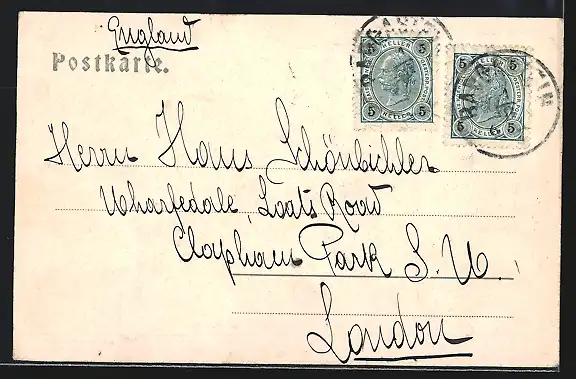 England
Postkarte.
5 HELLER 5
5 HELLER 5
5 5
5 HELLER 5
5 HELLER 5
Herrn Hans Schönbichler
Wharfedale, Loats Road
Clapham Park S. W.
London